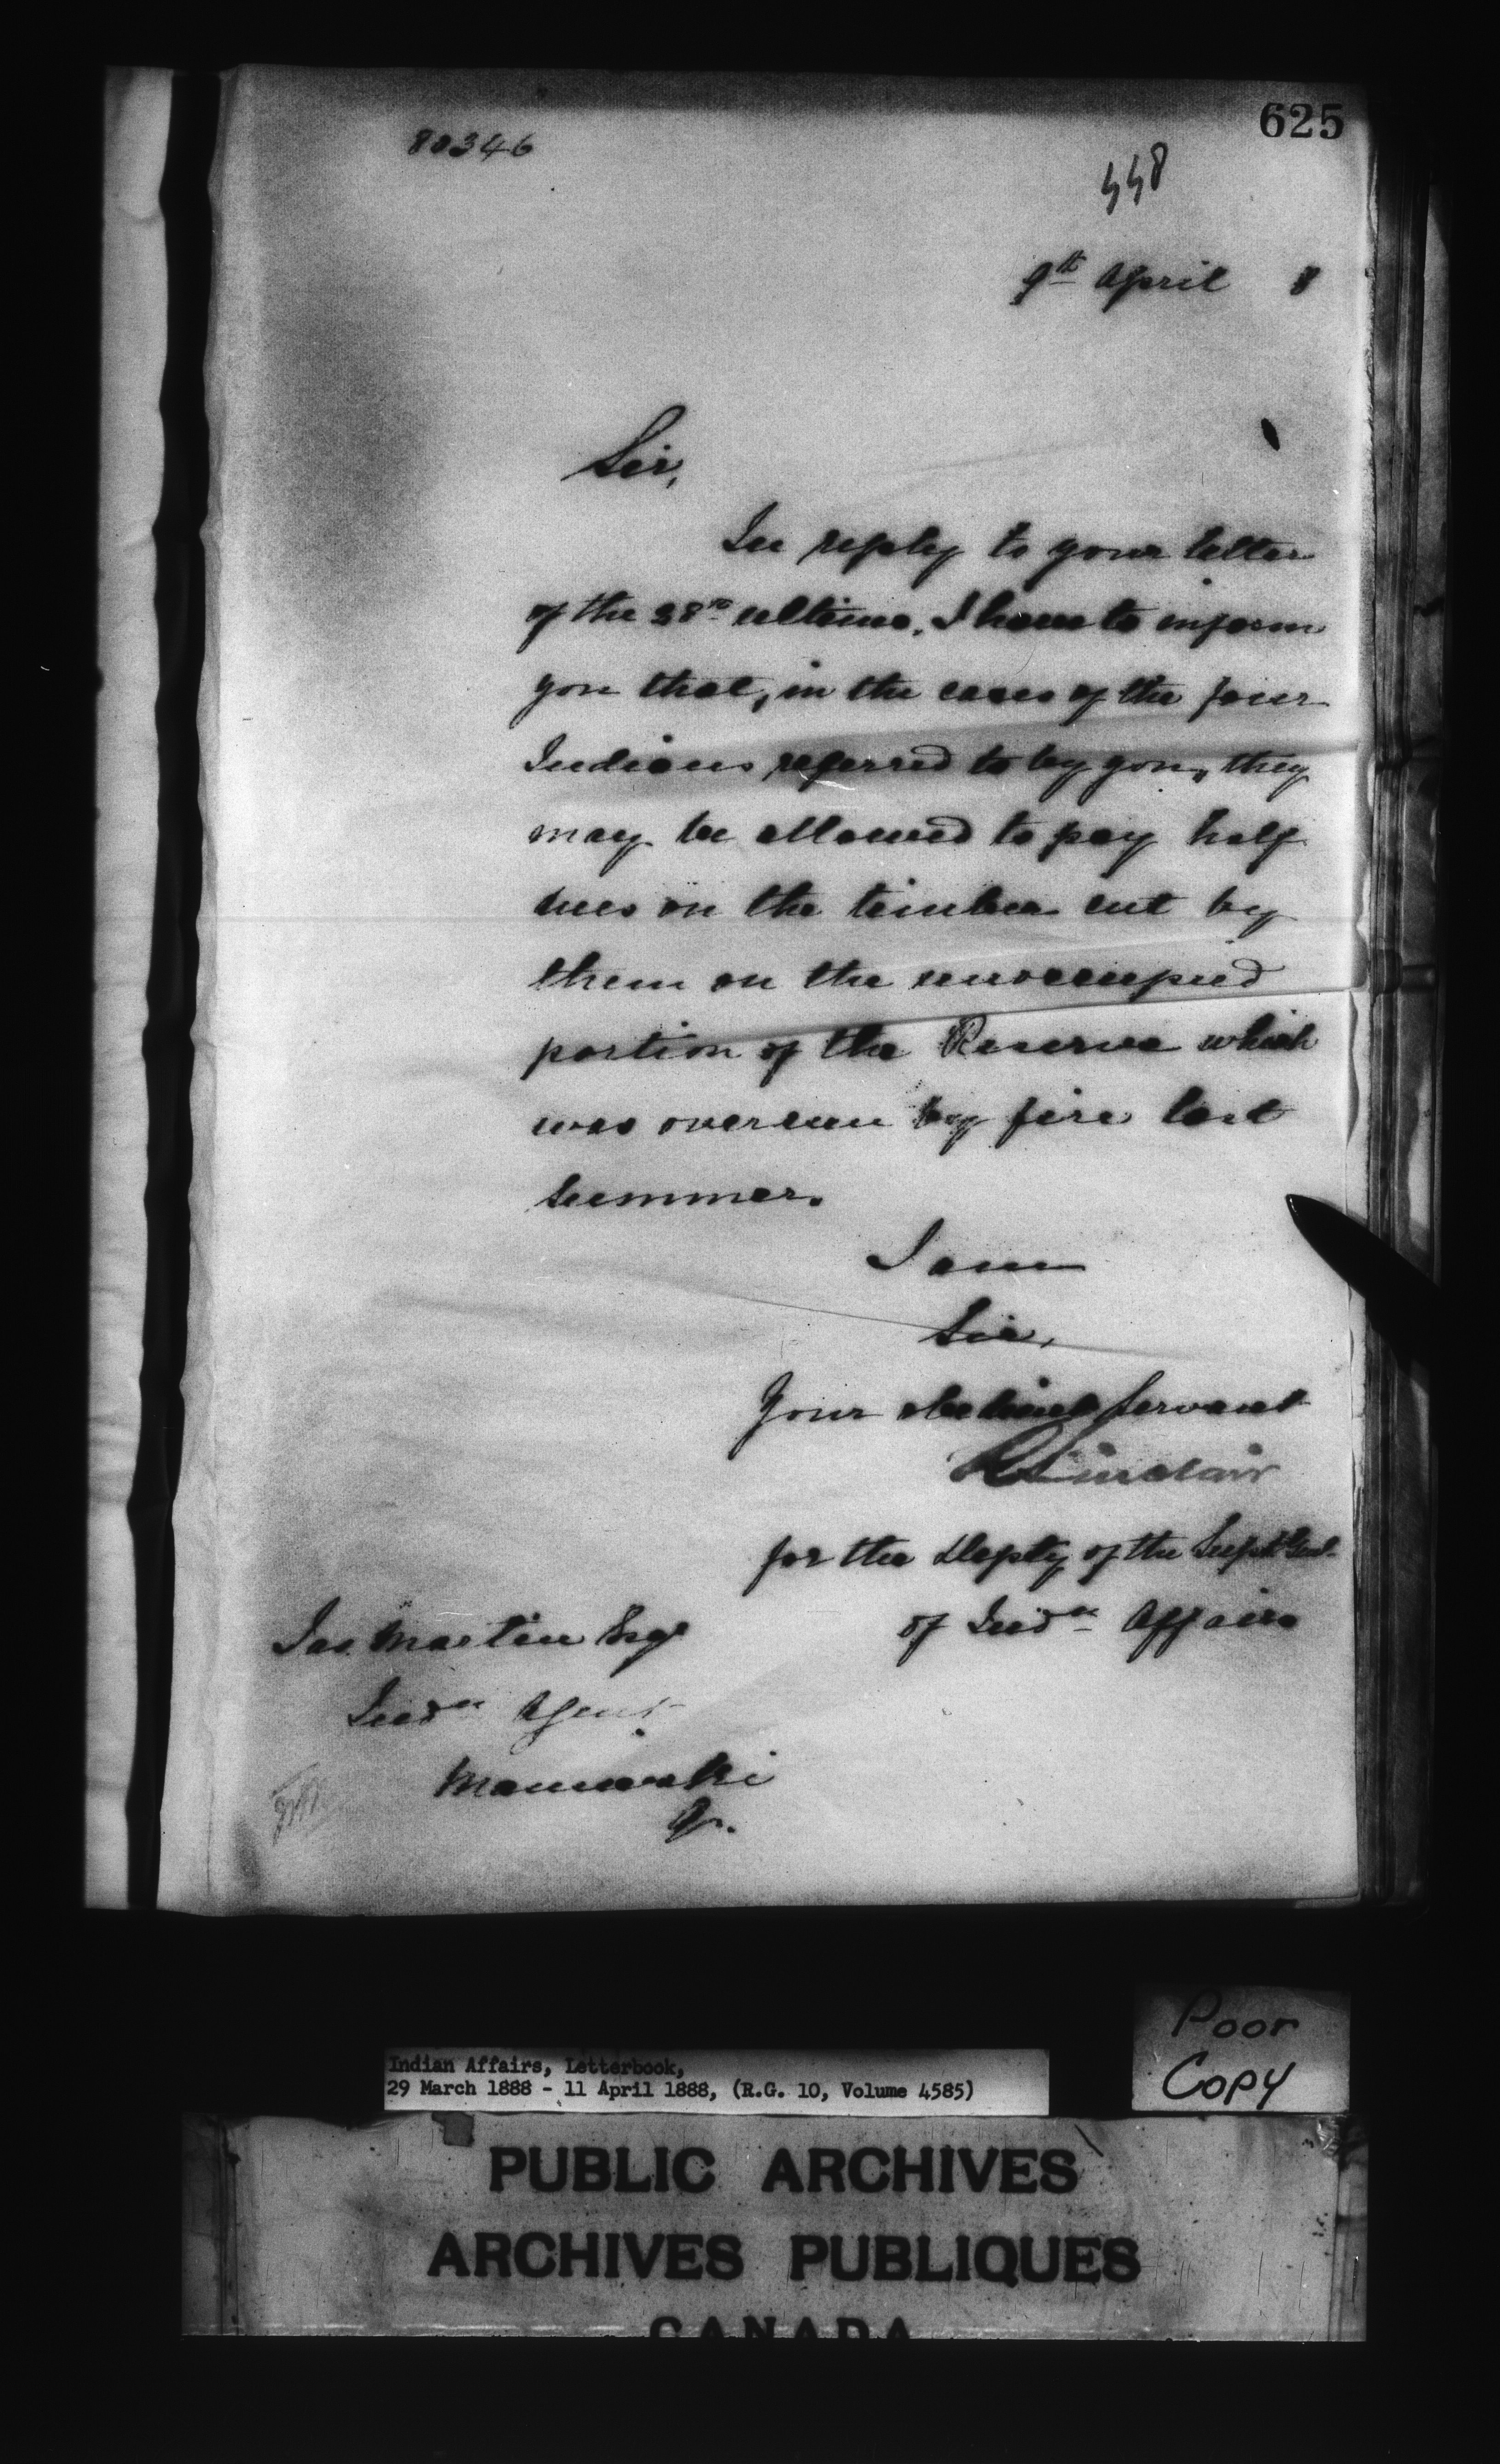 625
80346
448
9th April 8
Sir,
In reply to your letter
of the 28th ultimo, I have to inform
you that, in the cases of the four
Indians referred to by you, they
may be allowed to pay half
dues on the timber cut by
them on the unoccupied
portion of the Reserve which
was overrun by fire last
Summer.
I am
Sir,
Your obedient Servant
R Sinclair
for the Depty of the Supt Genl.
of Indn Affairs
Jas. Martin Esqr
Indn Agent
Maniwaki
Q.
Poor
Copy
Indian Affairs, Letterbook,
29 March 1888 - 11 April 1888, (R.G. 10, Volume 4585)
PUBLIC ARCHIVES
ARCHIVES PUBLIQUES
CANADA